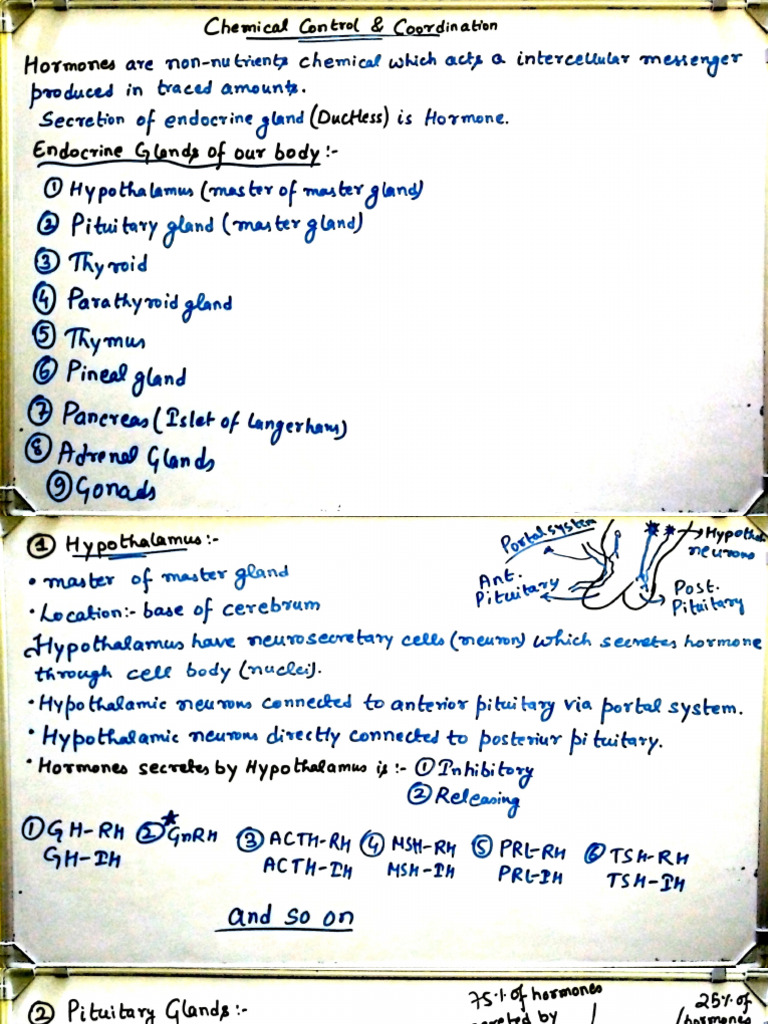 Chemical Control & Coordination
Hormones are non-nutrients chemical which acts a intercellular messenger
produced in traced amounts.
Secretion of endocrine gland (Ductless) is Hormone.
Endocrine Glands of our body :-
① Hypothalamus (master of master gland)
② Pituitary gland (master gland)
③ Thyroid
④ Parathyroid gland
⑤ Thymus
⑥ Pineal gland
⑦ Pancreas (Islet of Langerhans)
⑧ Adrenal Glands
⑨ Gonads
① Hypothalamus :-
• master of master gland
• Location:- base of cerebrum
Portal system
Hypoth
neurons
Ant.
Pituitary
Post.
Pituitary
Hypothalamus have neurosecretary cells (neuron) which secretes hormone
through cell body (nuclei).
• Hypothalamic neurons connected to anterior pituitary via portal system.
• Hypothalamic neurons directly connected to posteriur pituitary.
• Hormones secretes by Hypothalamus is :- ① Inhibitory
② Releasing
① GH-RH ② GnRH ③ ACTH-RH ④ MSH-RH ⑤ PRL-RH ⑥ TSH-RH
GH-IH ACTH-IH MSH-IH PRL-IH TSH-IH
and so on
② Pituitary Glands:-
75% of hormones
25% of
hormones